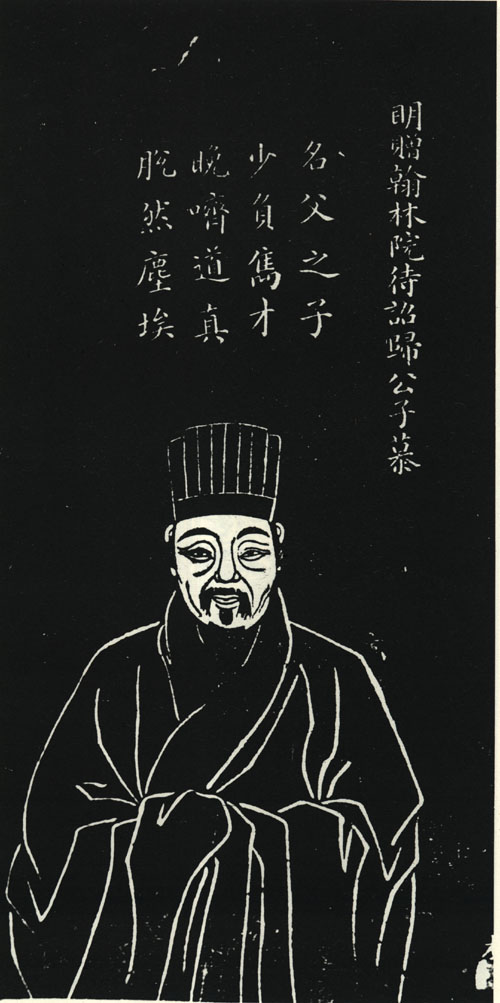 明贈翰林院待詔歸公子慕
名父之子
少負雋才
晚嚌道真
脫然塵埃